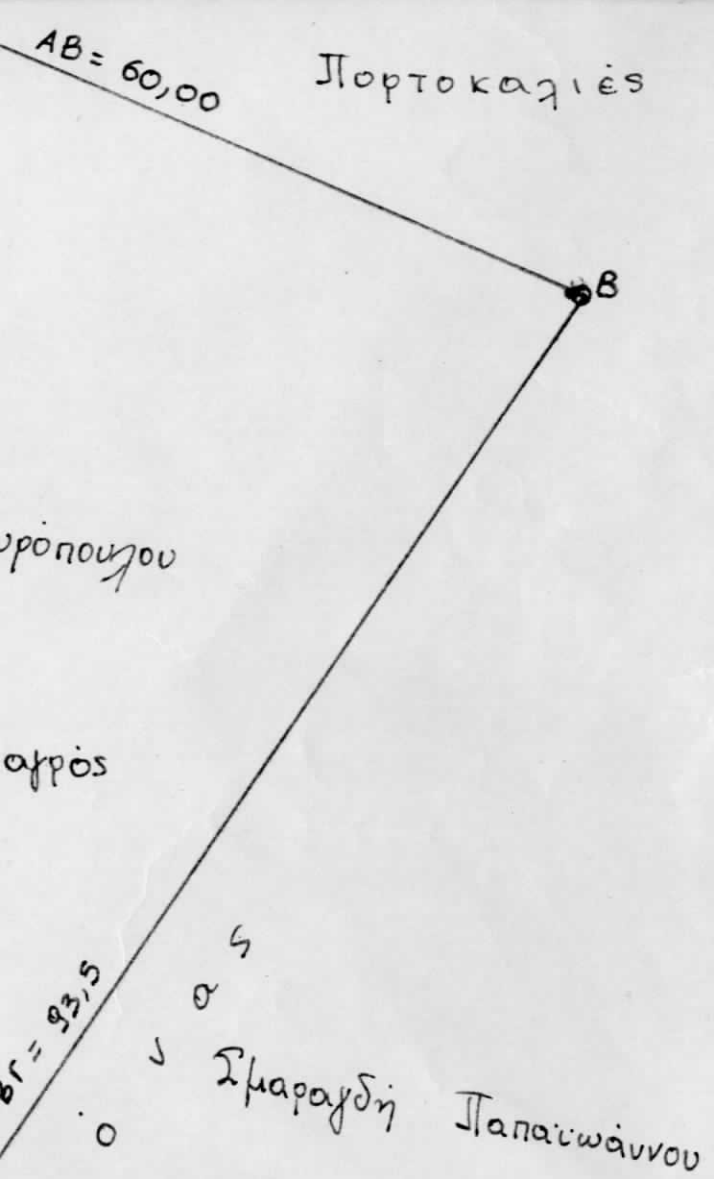 AB = 60,00
Πορτοκαλιές
B
υρόπουλου
αγρός
ΒΓ = 93,5
Σμαραγδή Παπαϊωάννου